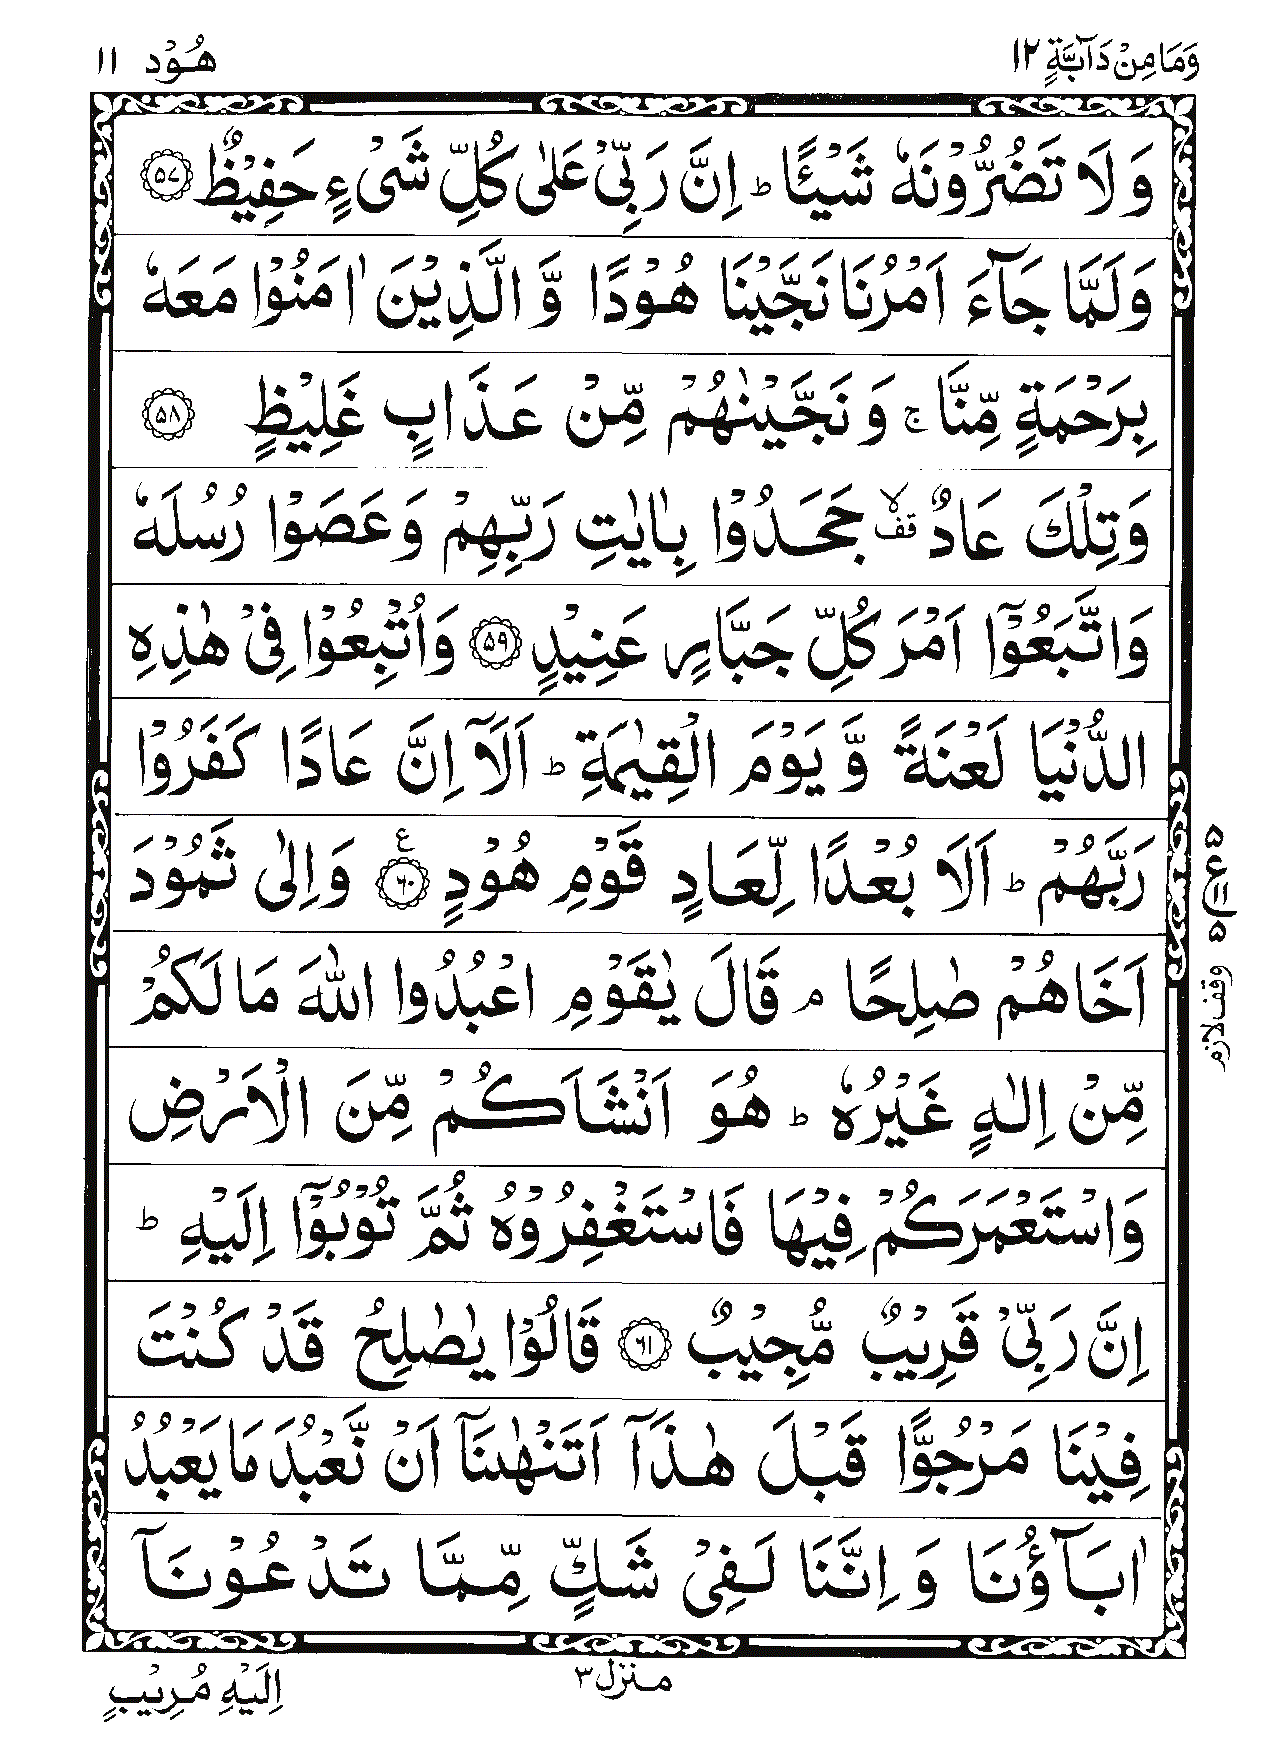 وَمَا مِنْ دَآبَّةٍ ١٢ هُوْد ١١
وَ لَا تَضُرُّوْنَهٗ شَيْـًٔا ؕ اِنَّ رَبِّيْ عَلٰى كُلِّ شَيْءٍ حَفِيْظٌ ۝۵۷
وَلَمَّا جَآءَ اَمْرُنَا نَجَّيْنَا هُوْدًا وَّ الَّذِيْنَ اٰمَنُوْا مَعَهٗ
بِرَحْمَةٍ مِّنَّا ۚ وَ نَجَّيْنٰهُمْ مِّنْ عَذَابٍ غَلِيْظٍ ۝۵۸
وَتِلْكَ عَادٌ ۙ قف جَحَدُوْا بِاٰيٰتِ رَبِّهِمْ وَ عَصَوْا رُسُلَهٗ
وَاتَّبَعُوْۤا اَمْرَ كُلِّ جَبَّارٍ عَنِيْدٍ ۝۵۹ وَاُتْبِعُوْا فِيْ هٰذِهِ
الدُّنْيَا لَعْنَةً وَّ يَوْمَ الْقِيٰمَةِ ؕ اَلَاۤ اِنَّ عَادًا كَفَرُوْا
رَبَّهُمْ ؕ اَلَا بُعْدًا لِّعَادٍ قَوْمِ هُوْدٍ ۝۶۰ ع وَ اِلٰى ثَمُوْدَ
۵ ع ۵
اَخَاهُمْ صٰلِحًا ۘ قَالَ يٰقَوْمِ اعْبُدُوا اللّٰهَ مَا لَكُمْ
وقف لازم
مِّنْ اِلٰهٍ غَيْرُهٗ ؕ هُوَ اَنْشَاَكُمْ مِّنَ الْاَرْضِ
وَاسْتَعْمَرَكُمْ فِيْهَا فَاسْتَغْفِرُوْهُ ثُمَّ تُوْبُوْۤا اِلَيْهِ ؕ
اِنَّ رَبِّيْ قَرِيْبٌ مُّجِيْبٌ ۝۶۱ قَالُوْا يٰصٰلِحُ قَدْ كُنْتَ
فِيْنَا مَرْجُوًّا قَبْلَ هٰذَاۤ اَتَنْهٰىنَاۤ اَنْ نَّعْبُدَ مَا يَعْبُدُ
اٰبَآؤُنَا وَ اِنَّنَا لَفِيْ شَكٍّ مِّمَّا تَدْعُوْنَاۤ
منزل ٣
اِلَيْهِ مُرِيْبٍ